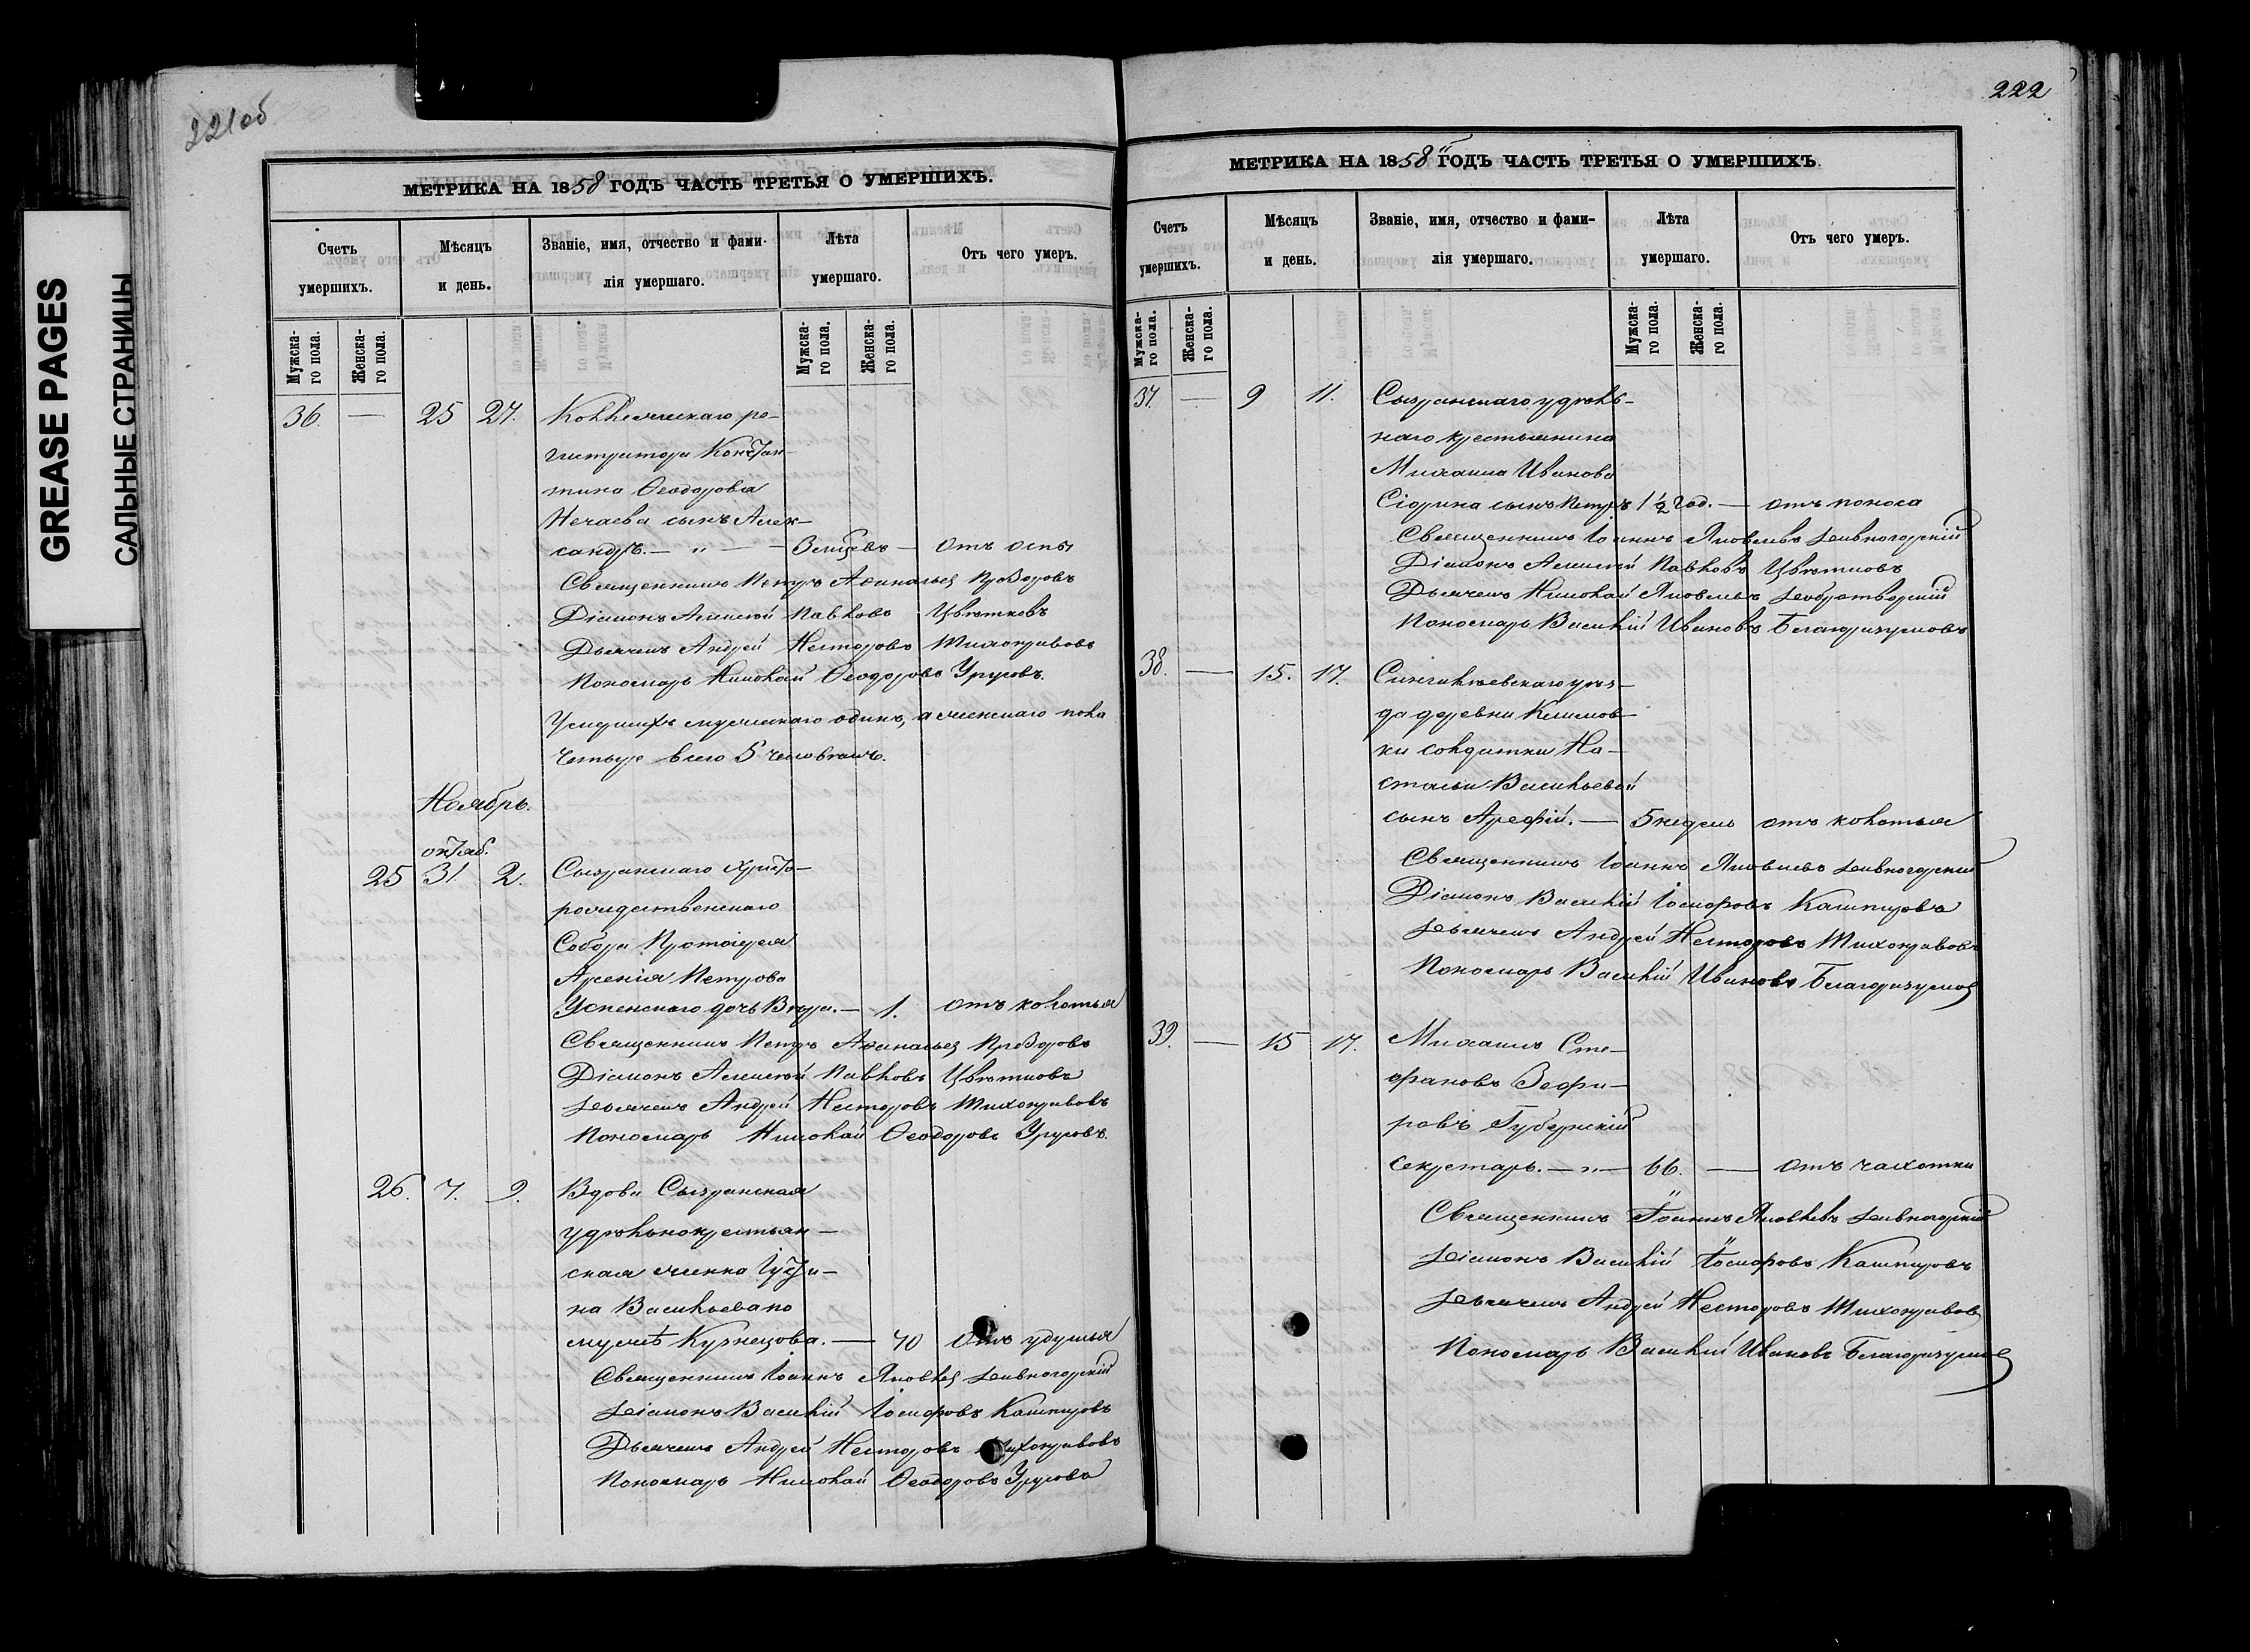 GREASE PAGES
САЛЬНЫЕ СТРАНИЦЫ
221об
МЕТРИКА НА 1858 ГОДЪ ЧАСТЬ ТРЕТЬЯ О УМЕРШИХЪ.
Счетъ умершихъ.
Мѣсяцъ и день.
Званіе, имя, отчество и фами-
лія умершаго.
Лѣта умершаго.
Отъ чего умеръ.
Мужска-
го пола.
Женска-
го пола.
Мужска-
го пола.
Женска-
го пола.
36. — 25 27. Коллежскаго ре-
гистратора Констан-
тина Ѳеодорова
Нечаева сынъ Алек-
сандръ. — „ — 3 месѣцевъ — отъ оспы
Священникъ Петръ Аѳанасьев
Діаконъ Алексѣй Павловъ Цвѣтковъ
Дьячекъ Андрей Несторовъ Тихонравовъ
Пономарь Николай Ѳеодоровъ Урусовъ.
Умершихъ мужескаго одинъ, а женскаго пола
четыре всего 5 человѣкъ.
Ноябрь.
октяб.
25 31 2. Сызранскаго Христо-
рождественскаго
Собора Протоіерея
Арсенія Петрова
Успенскаго дочь Вѣра. — 1. отъ колотья
Священникъ Петръ Аѳанасьев
Діаконъ Алексѣй Павловъ Цвѣтковъ
Дьячекъ Андрей Несторовъ Тихонравовъ
Пономарь Николай Ѳеодоровъ Урусовъ.
26. 7. 9. Вдова Сызранская
удѣльнокрестьян-
ская женка Іусти-
на Васильева по
мужѣ Кузнецова. — 70 отъ удушья
Священникъ Іоаннъ Яковлев Дивногорскій
Діаконъ Василій Іосифовъ Кашпировъ
Дьячекъ Андрей Несторовъ Тихонравовъ
Пономарь Николай Ѳеодоровъ Урусовъ
222
МЕТРИКА НА 1858 ГОДЪ ЧАСТЬ ТРЕТЬЯ О УМЕРШИХЪ.
Счетъ умершихъ.
Мѣсяцъ и день.
Званіе, имя, отчество и фами-
лія умершаго.
Лѣта умершаго.
Отъ чего умеръ.
Мужска-
го пола.
Женска-
го пола.
Мужска-
го пола.
Женска-
го пола.
37. — 9 11. Сызранскаго удѣль-
наго крестьянина
Михаила Иванова
сынъ Петръ 1 1/2 год. — отъ поноса
Священникъ Іоаннъ Яковлевъ Дивногорскій
Діаконъ Алексѣй Павловъ Цвѣтковъ
Дьячекъ Николай Яковлевъ Добротворскій
Пономарь Василій Ивановъ Благоразумовъ
38. — 15. 17. Сингилѣевскаго уѣз-
да деревни Климов-
ки солдатки На-
стасьи Васильевой
сынъ Арефій. — 5 недель отъ колотья
Священникъ Іоаннъ Яковлевъ Дивногорскій
Діаконъ Василій Іосифовъ Кашпировъ
Дьячекъ Андрей Несторовъ Тихонравовъ
Пономарь Василій Ивановъ Благоразумов
39. — 15 17. Михаилъ Сте-
фановъ Зефи-
ровъ Губернскій
секретарь. — „ — 66. — отъ чахотки
Священникъ Іоаннъ Яковлевъ Дивногорскій
Діаконъ Василій Іосифовъ Кашпировъ
Дьячекъ Андрей Несторовъ Тихонравов
Пономарь Василій Ивановъ Благоразумов